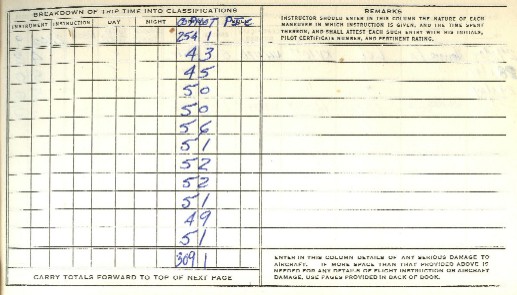 BREAKDOWN OF TRIP TIME INTO CLASSIFICATIONS
INSTRUMENT INSTRUCTION DAY NIGHT
254 1
4 3
4 5
5 0
5 0
5 6
5 1
5 2
5 2
5 1
4 9
5 1
309 1
CARRY TOTALS FORWARD TO TOP OF NEXT PAGE
REMARKS
INSTRUCTOR SHOULD ENTER IN THIS COLUMN THE NATURE OF EACH
MANEUVER IN WHICH INSTRUCTION IS GIVEN, AND THE TIME SPENT
THEREON, AND SHALL ATTEST EACH SUCH ENTRY WITH HIS INITIALS,
PILOT CERTIFICATE NUMBER, AND PERTINENT RATING.
ENTER IN THIS COLUMN DETAILS OF ANY SERIOUS DAMAGE TO
AIRCRAFT. IF MORE SPACE THAN THAT PROVIDED ABOVE IS
NEEDED FOR ANY DETAILS OF FLIGHT INSTRUCTION OR AIRCRAFT
DAMAGE, USE PAGES PROVIDED IN BACK OF BOOK.